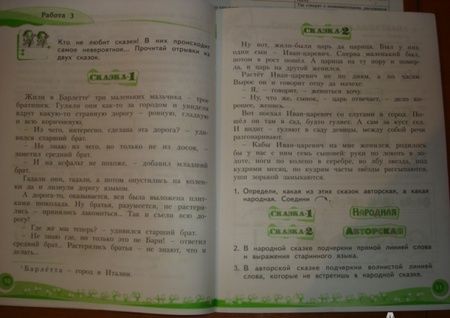 Работа 3
Кто не любит сказки! В них происходит
самое невероятное... Прочитай отрывки из
двух сказок.
СКАЗКА-1
Жили в Барлетте¹ три маленьких мальчика – трое
братишек. Гуляли они как-то за городом и увидели
вдруг какую-то странную дорогу – ровную, гладкую
и всю коричневую.
– Из чего, интересно, сделана эта дорога? – уди-
вился старший брат.
– Не знаю из чего, но только не из досок, – за-
метил средний брат.
– И на асфальт не похоже, – добавил младший
брат.
Гадали они, гадали, а потом опустились на колен-
ки да и лизнули дорогу языком.
А дорога-то, оказывается, вся была выложена плит-
ками шоколада. Ну братья, разумеется, не растеря-
лись – принялись лакомиться... Так и съели всю до-
рогу!
– Где же мы теперь? – удивился старший брат.
– Не знаю где, но только это не Бари! – ответил
средний брат... Растерялись братья – не знают, что и
делать..
¹ Барлетта – город в Италии.
СКАЗКА-2
Ну вот, жило-были царь да царица. Был у них
один сын – Иван-царевич. Сперва маленький был,
потом в рост пошёл. А царица на ту пору и помер-
ла, и царь на другой женился.
Растёт Иван-царевич не по дням, а по часам
Вырос он и говорит отцу да мачехе:
– Я, – говорит, – жениться хочу.
– Ну, что же, сынок, – царь отвечает, – дело хо-
рошее, женись.
Вот поехал Иван-царевич со слугами в город. По-
шёл он там в сад, будто гуляет. А сам за куст сел.
И видит: гуляют в саду девицы, между собой речи
разговаривают.
– Кабы Иван-царевич на мне женился, родилось
бы у нас с ним семь сыновей: руки по локоть в зо-
лоте, ноги по колено в серебре, во лбу звезда, под
кудрями месяц, по кудрям часты звёзды рассыпаются,
уши зорькой замыкаются.
1. Определи, какая из этих сказок авторская, а какая
народная. Соедини
СКАЗКА-1 НАРОДНАЯ
СКАЗКА-2 АВТОРСКАЯ
2. В народной сказке подчеркни прямой линией слова
и выражения старинного языка.
3. В авторской сказке подчеркни волнистой линией
слова, которые не встретишь в народной сказке.